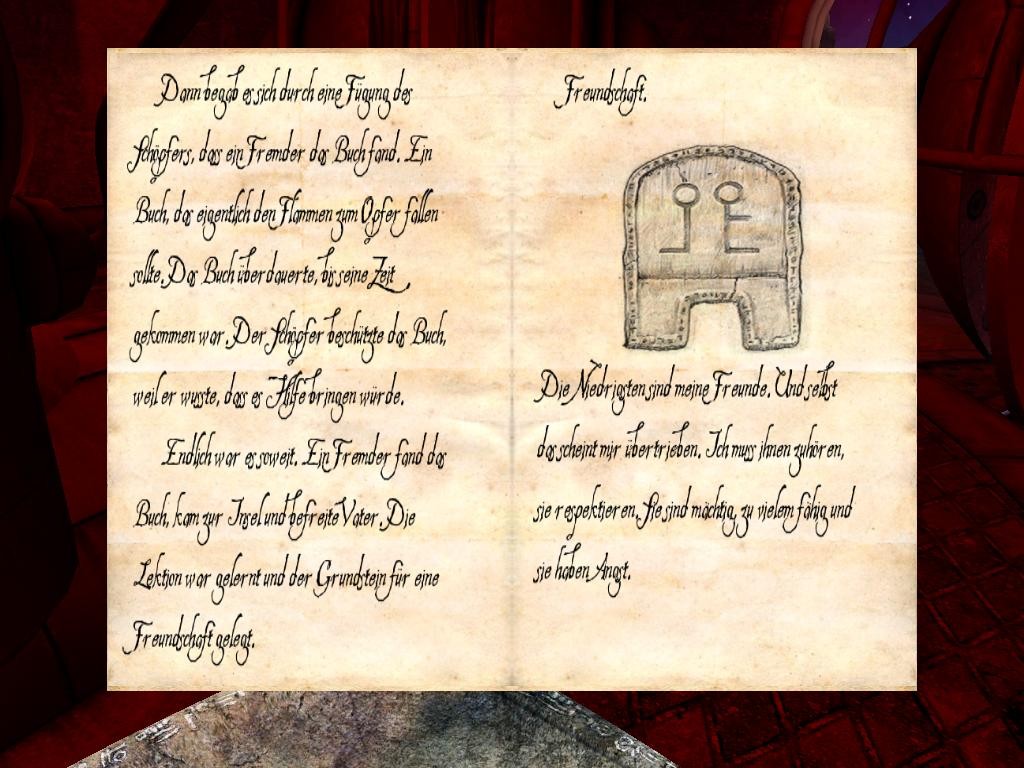 Dann begab es sich durch eine Fügung des
Schöpfers, dass ein Fremder das Buch fand. Ein
Buch, das eigentlich den Flammen zum Opfer fallen
sollte. Das Buch überdauerte, bis seine Zeit
gekommen war. Der Schöpfer beschützte das Buch,
weil er wusste, dass es Hilfe bringen würde.
Endlich war es soweit. Ein Fremder fand das
Buch, kam zur Insel und befreite Vater. Die
Lektion war gelernt und der Grundstein für eine
Freundschaft gelegt.
Freundschaft.
Die Niedrigsten sind meine Freunde. Und selbst
das scheint mir übertrieben. Ich muss ihnen zuhören,
sie respektieren. Sie sind mächtig, zu vielem fähig und
sie haben Angst.